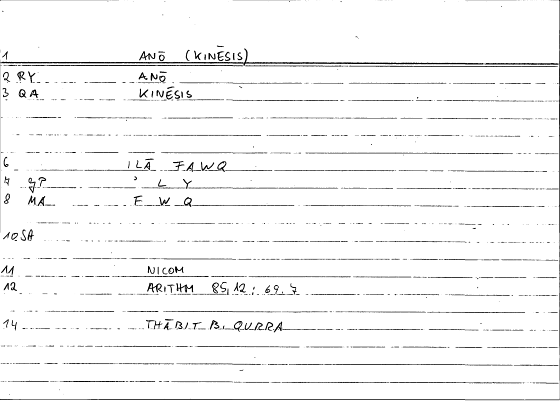 1 ANŌ (KINĒSIS)
2 RY ANŌ
3 QA KINĒSIS
6 ILĀ FAWQ
7 gP ' L Y
8 MA F W Q
10 SA
11 NICOM
12 ARITHM 85,12; 69.7
14 THĀBIT B. QURRA